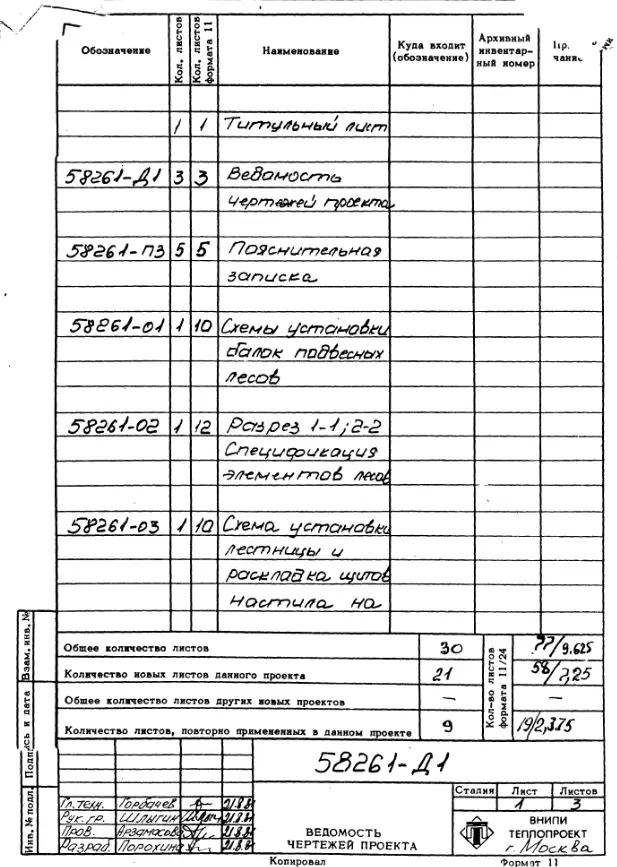 Обозначение Кол. листов Кол. листов формата 11 Наименование Куда входит (обозначение) Архивный инвентарный номер
1 1 Титульный лист
58261-Д1 3 3 Ведомость
чертежей проекта
58261-ПЗ 5 5 Пояснительная
записка
58261-01 1 10 Схемы установки
балок подвесных
лесов
58261-02 1 12 Разрез 1-1; 2-2
Спецификация
элементов лесов
58261-03 1 10 Схема установки
лестницы и
раскладка щитов
настила на
Взам. инв. №
Общее количество листов 30 77/9.625
Количество новых листов данного проекта 21 58/7,25
Общее количество листов других новых проектов — —
Количество листов, повторно примененных в данном проекте 9 19/2,375
Кол-во листов формата 11/24
Инв. № подл.
58261-Д1
Гл. техн. Горбачев 21.8.81
Рук. гр. Шлыгин
Пров. Арзамасова 21.8.81
Разраб. Порохина 21.8.81
ВЕДОМОСТЬ
ЧЕРТЕЖЕЙ ПРОЕКТА
Стадия Лист Листов
1 3
ВНИПИ
ТЕПЛОПРОЕКТ
г. Москва
Копировал Формат 11